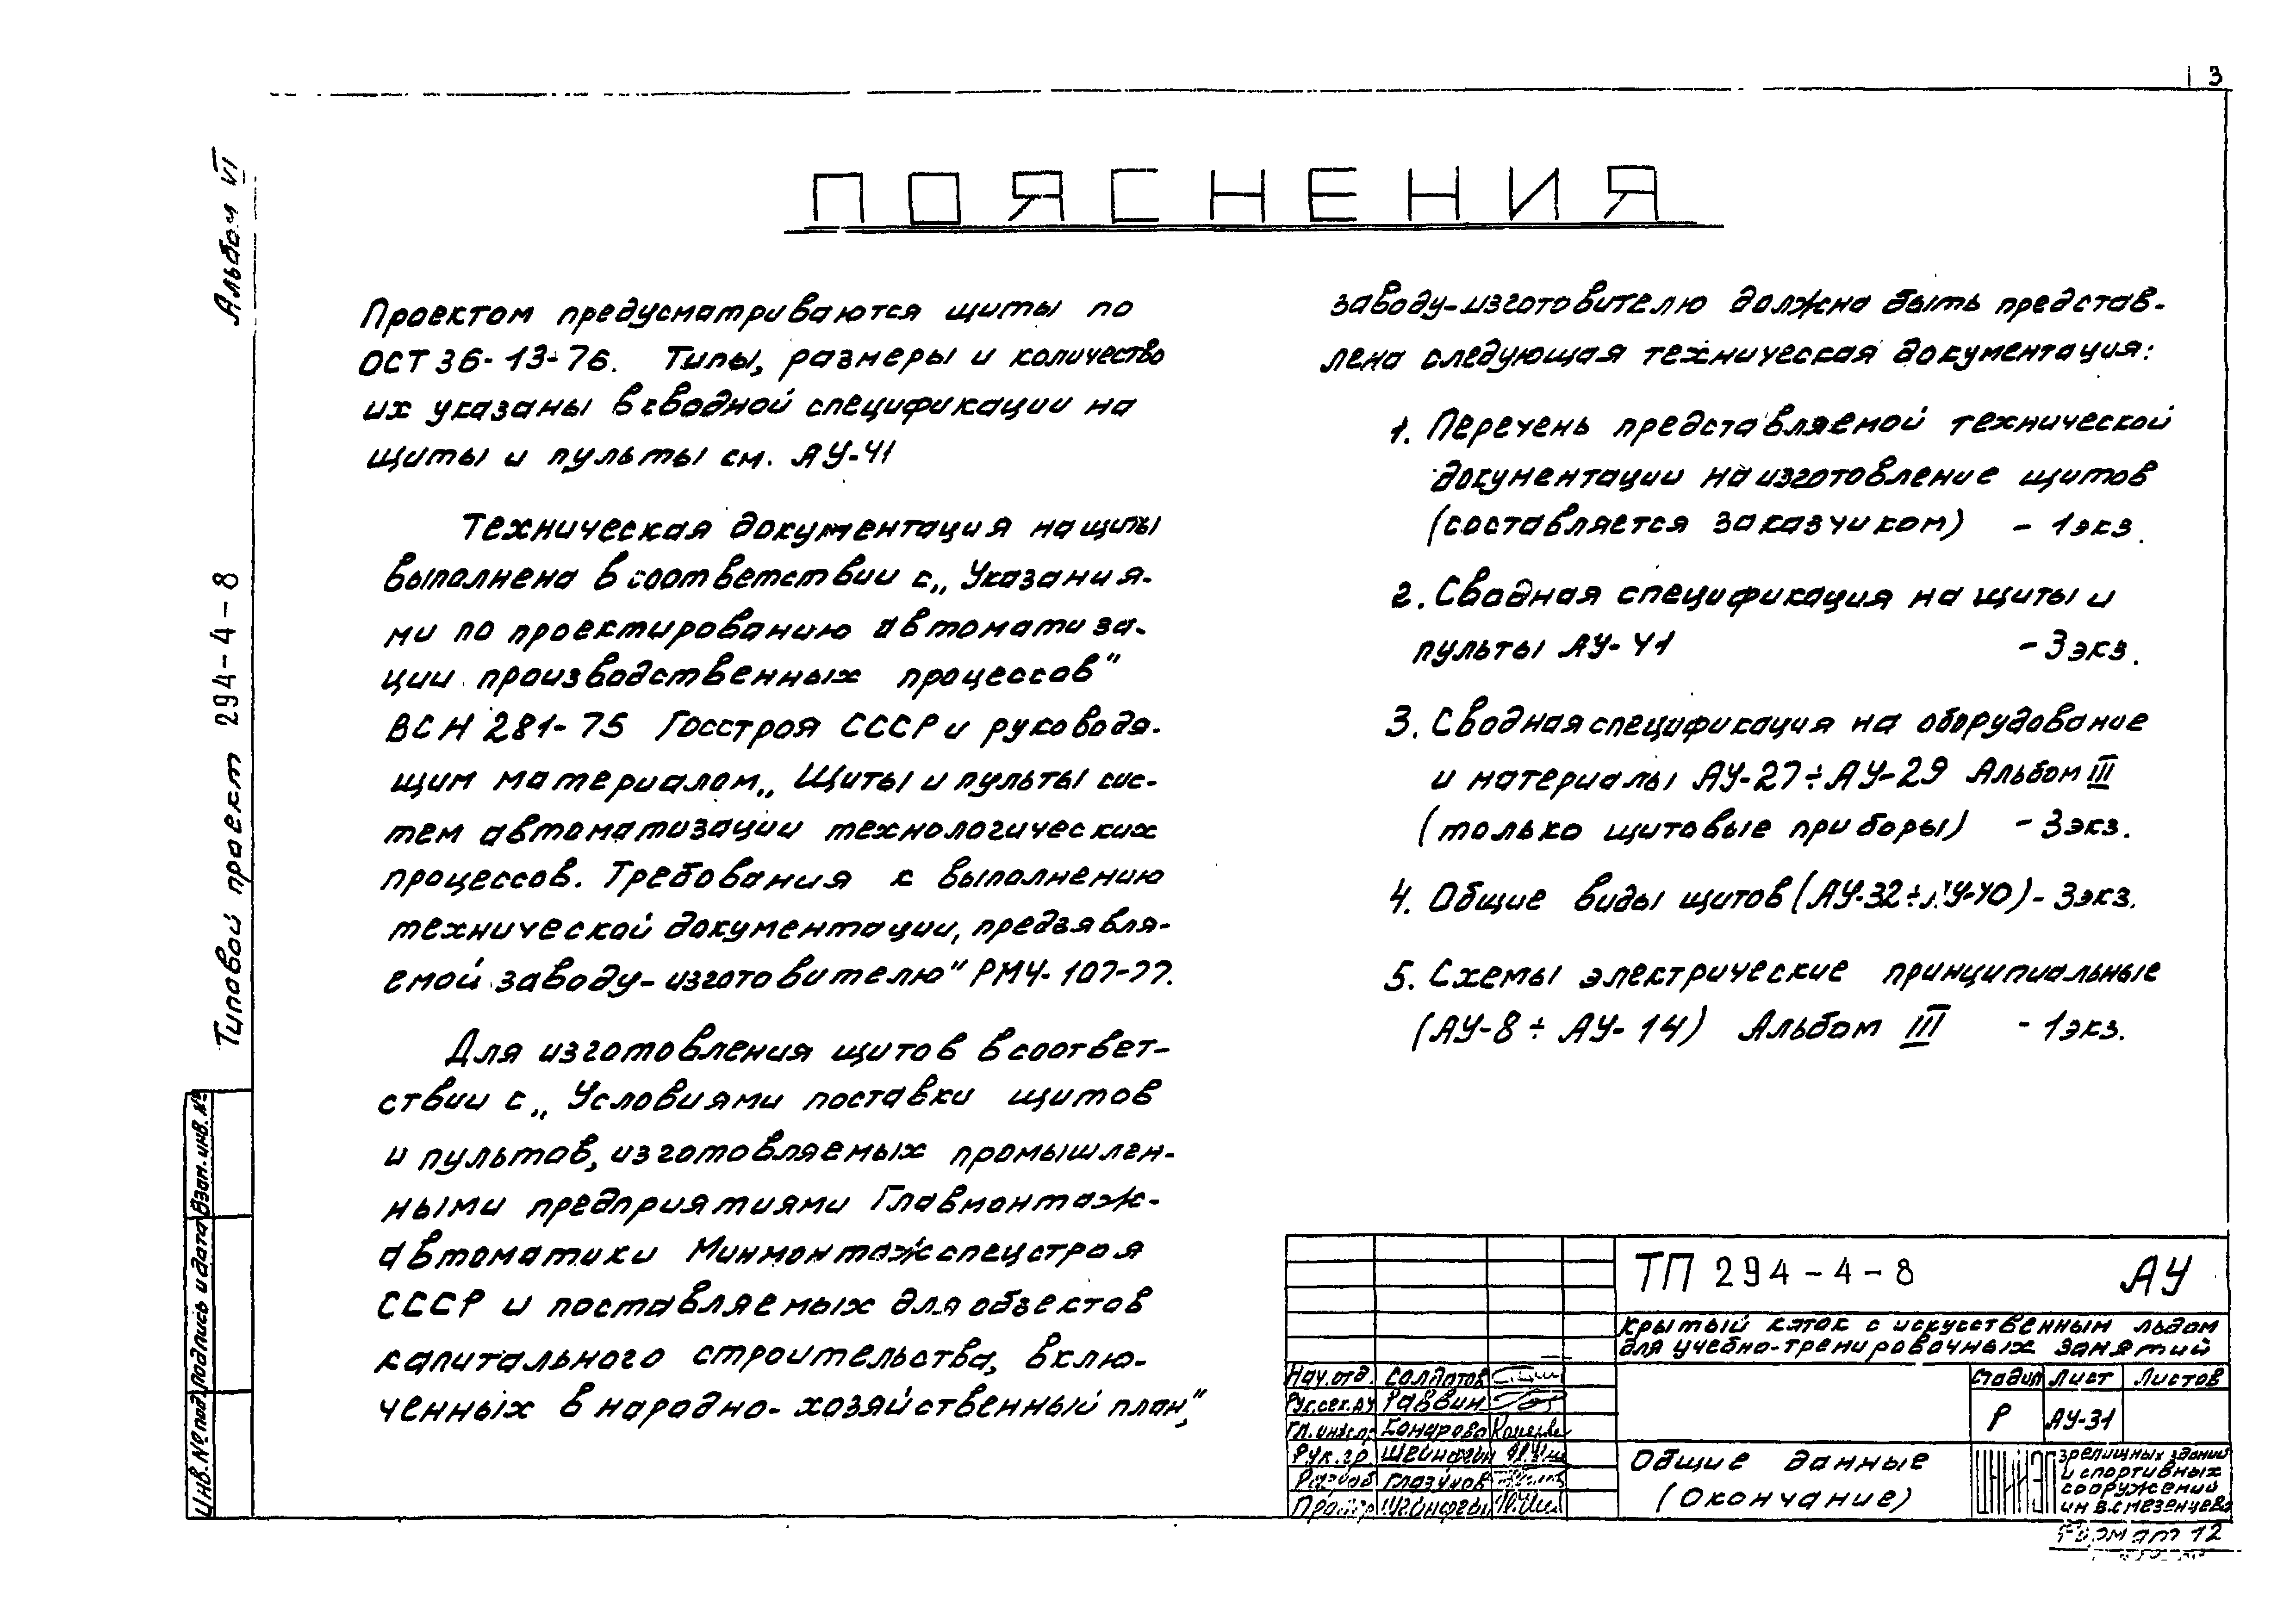 3
Альбом VI
Типовой проект 294-4-8
ПОЯСНЕНИЯ
Проектом предусматриваются щиты по
ОСТ 36-13-76. Типы, размеры и количество
их указаны в сводной спецификации на
щиты и пульты см. АУ-41
Техническая документация на щиты
выполнена в соответствии с „Указания-
ми по проектированию автоматиза-
ции производственных процессов"
ВСН 281-75 Госстроя СССР и руководя-
щим материалом „Щиты и пульты сис-
тем автоматизации технологических
процессов. Требования к выполнению
технической документации, предъявля-
емой заводу-изготовителю" РМ4-107-77.
Для изготовления щитов в соответ-
ствии с „Условиями поставки щитов
и пультов, изготовляемых промышлен-
ными предприятиями Главмонтаж-
автоматики Минмонтажспецстроя
СССР и поставляемых для объектов
капитального строительства, вклю-
ченных в народно-хозяйственный план,"
заводу-изготовителю должна быть представ-
лена следующая техническая документация:
1. Перечень представляемой технической
документации на изготовление щитов
(составляется заказчиком) - 1 экз.
2. Сводная спецификация на щиты и
пульты АУ-41 - 3 экз.
3. Сводная спецификация на оборудование
и материалы АУ-27÷АУ-29 Альбом III
(только щитовые приборы) - 3 экз.
4. Общие виды щитов (АУ-32÷АУ-40) - 3 экз.
5. Схемы электрические принципиальные
(АУ-8÷АУ-14) Альбом III - 1 экз.
Инв. № под Подпись и дата Взам. инв. №
ТП 294-4-8 АУ
Крытый каток с искусственным льдом
для учебно-тренировочных занятий
Нач. отд. Солдатов
Рук. сек. АУ Раввин
Гл. инж. пр Комарова
Рук. гр. Шейнфайн
Разраб Глазунов
Шейнфайн
Стадия Лист Листов
Р АУ-31
Общие данные
(Окончание)
ЦНИИЭП зрелищных зданий
и спортивных
сооружений
им В.С. Мезенцева
Формат 12